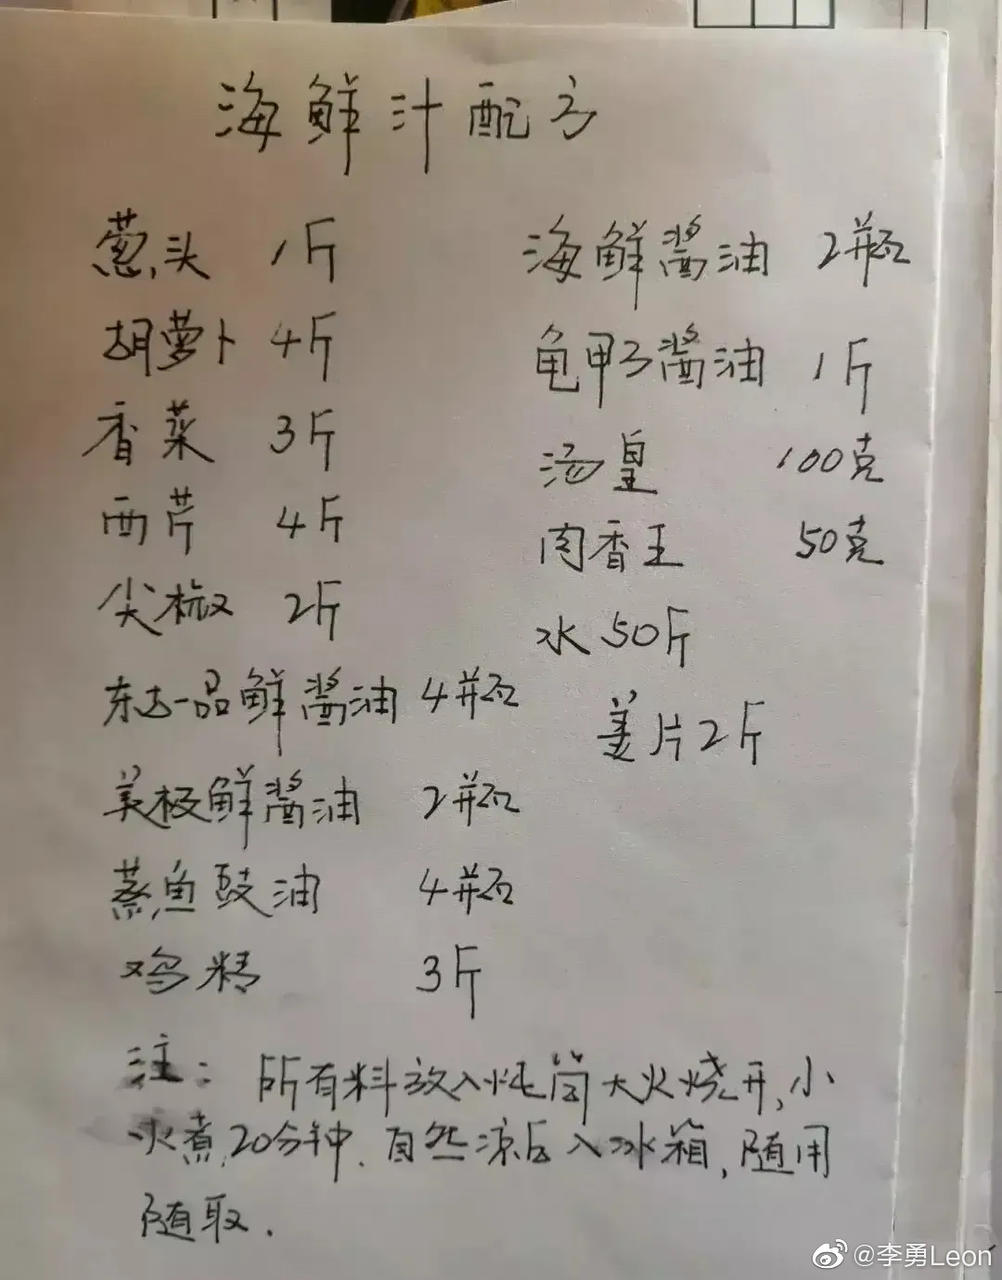 海鲜汁配方
葱头 1斤
胡萝卜 4斤
香菜 3斤
西芹 4斤
尖椒 2斤
东古一品鲜酱油 4瓶
美极鲜酱油 2瓶
蒸鱼豉油 4瓶
鸡精 3斤
海鲜酱油 2瓶
龟甲万酱油 1斤
汤皇 100克
肉香王 50克
水50斤
姜片2斤
注：所有料放入炖筒大火烧开,小
火煮20分钟.自然凉后入冰箱,随用
随取.
@李勇Leon